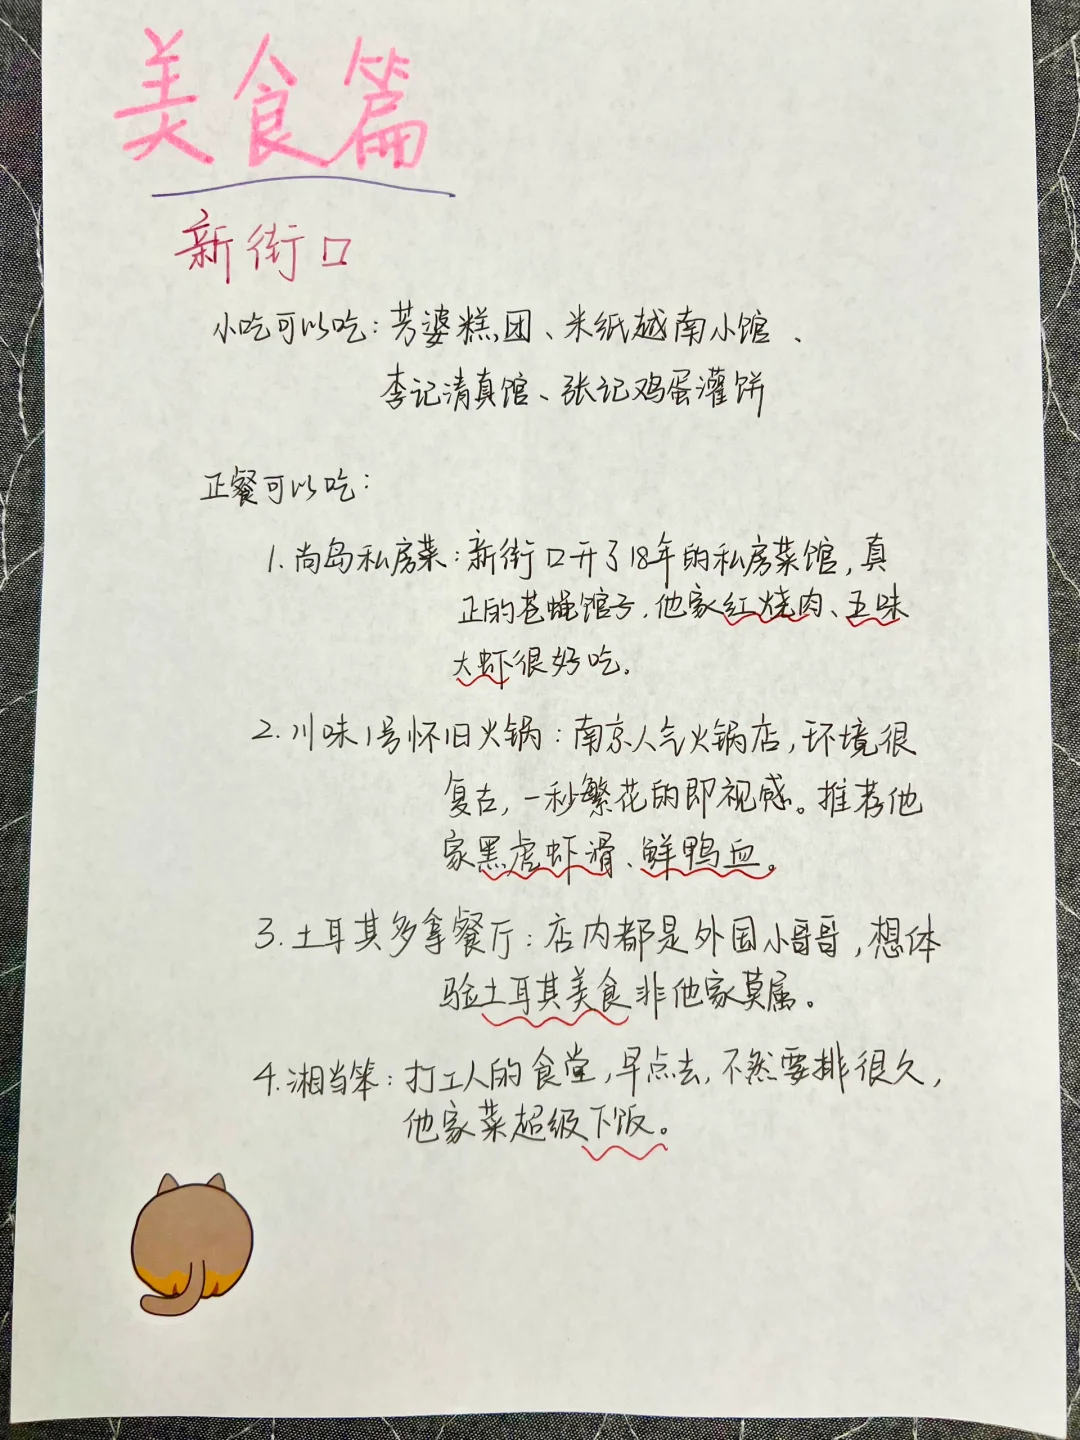 美食篇
新街口
小吃可以吃：芳婆糕团、米纸越南小馆、
李记清真馆、张记鸡蛋灌饼
正餐可以吃：
1.尚岛私房菜：新街口开了18年的私房菜馆，真
正的苍蝇馆子.他家红烧肉、五味
大虾很好吃.
2.川味1号怀旧火锅：南京人气火锅店，环境很
复古，一秒繁花的即视感。推荐他
家黑虎虾滑、鲜鸭血。
3.土耳其多拿餐厅：店内都是外国小哥哥，想体
验土耳其美食非他家莫属。
4.湘当笨：打工人的食堂，早点去，不然要排很久，
他家菜超级下饭。